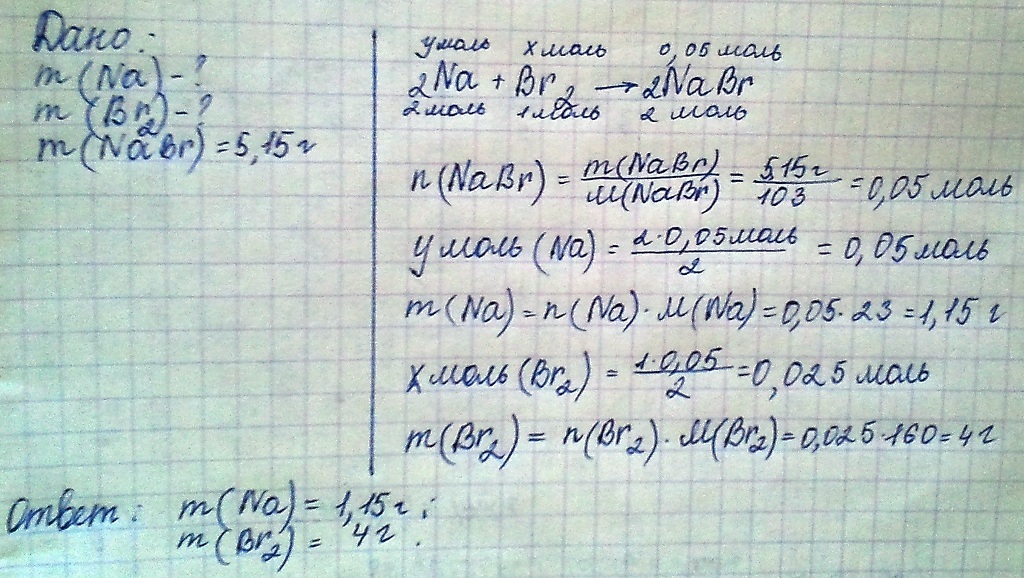 Дано:
m(Na) - ?
m(Br₂) - ?
m(NaBr) = 5,15 г
y моль x моль 0,05 моль
2Na + Br₂ → 2NaBr
2 моль 1 моль 2 моль
n(NaBr) = m(NaBr)/M(NaBr) = 515г/103 = 0,05 моль
y моль (Na) = 2·0,05 моль/2 = 0,05 моль
m(Na) = n(Na)·M(Na) = 0,05·23 = 1,15 г
x моль (Br₂) = 1·0,05/2 = 0,025 моль
m(Br₂) = n(Br₂)·M(Br₂) = 0,025·160 = 4 г
Ответ: m(Na) = 1,15 г;
m(Br₂) = 4 г.